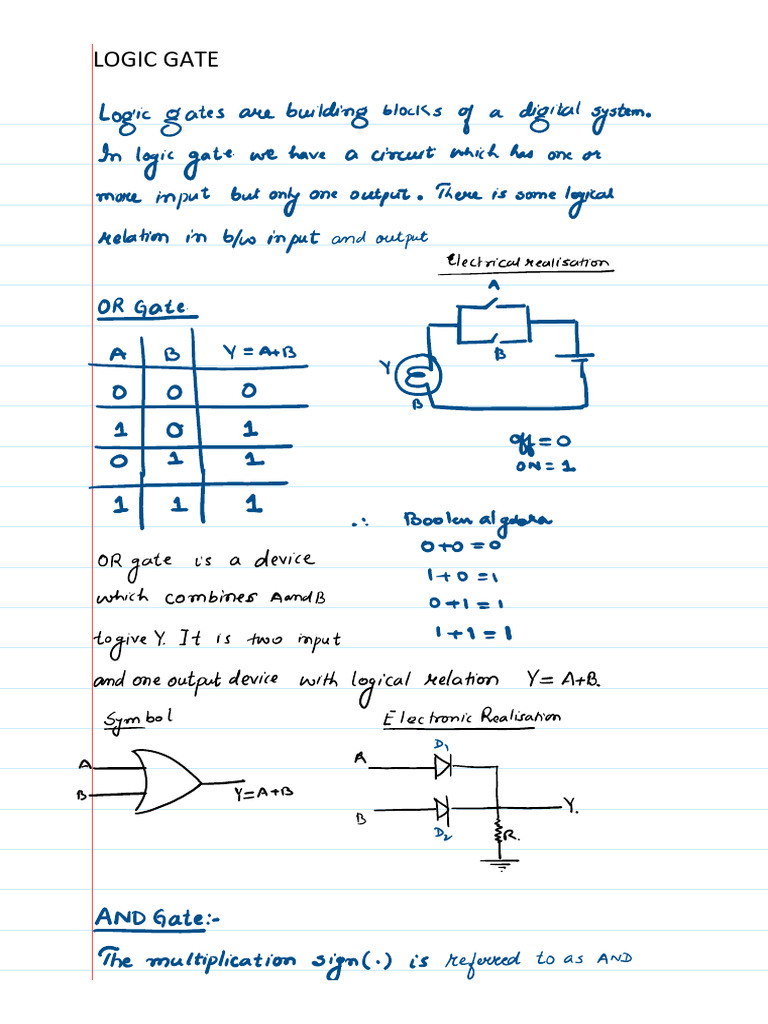 LOGIC GATE
Logic gates are building blocks of a digital system.
In logic gate we have a circuit which has one or
more input but only one output. There is some logical
relation in b/w input and output
Electrical realisation
OR Gate
A B Y = A+B
0 0 0
1 0 1
0 1 1
1 1 1
A
B
Y
B
off = 0
ON = 1
∴ Boolen algebra
0+0=0
1+0=1
0+1=1
1+1=1
OR gate is a device
which combines A and B
to give Y. It is two input
and one output device with logical relation Y= A+B.
Symbol
A
B
Y=A+B
Electronic Realisation
D1
A
B
Y.
D2
R.
AND Gate:-
The multiplication sign(.) is referred to as AND